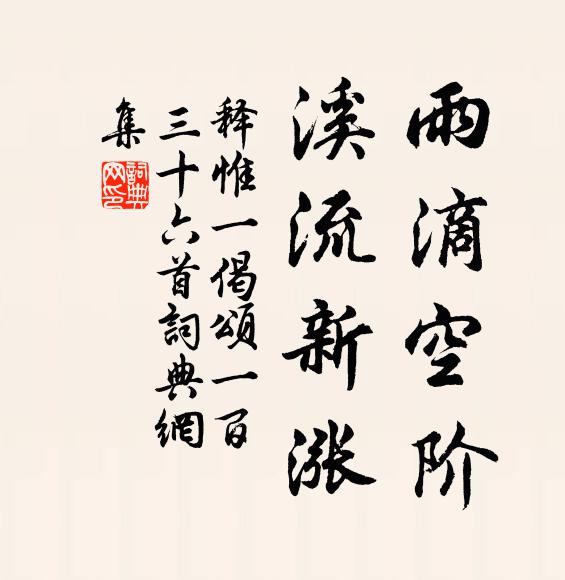 雨滴空阶
溪流新涨
释惟一偈颂一百
三十六首詞典網
集
詞典
网印